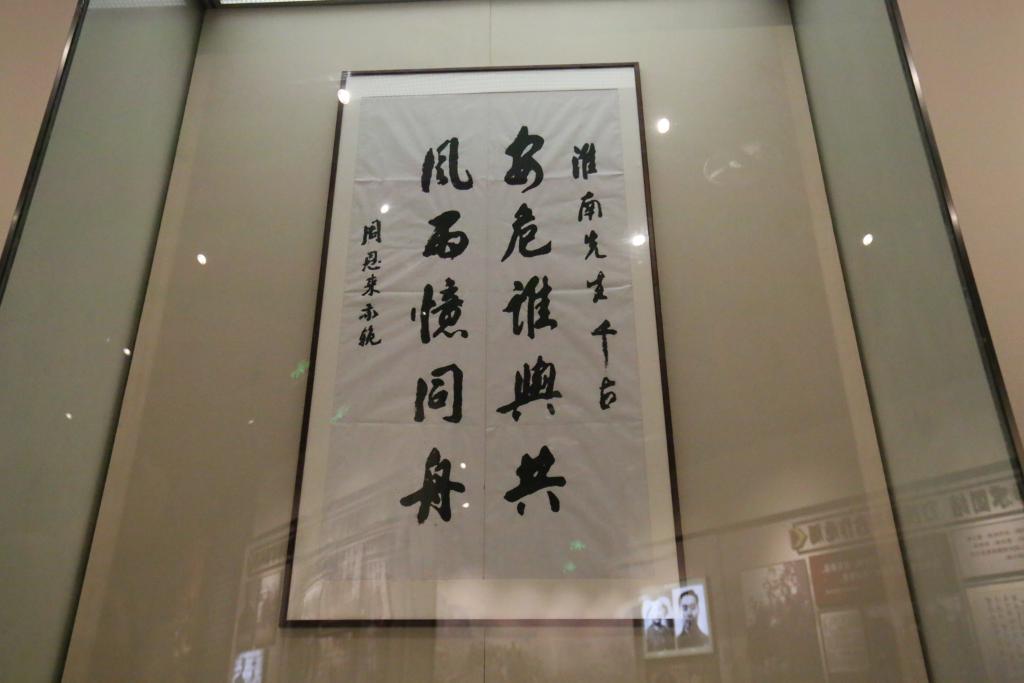 淮南先生千古
安危谁與共
風雨憶同舟
周恩来敬輓